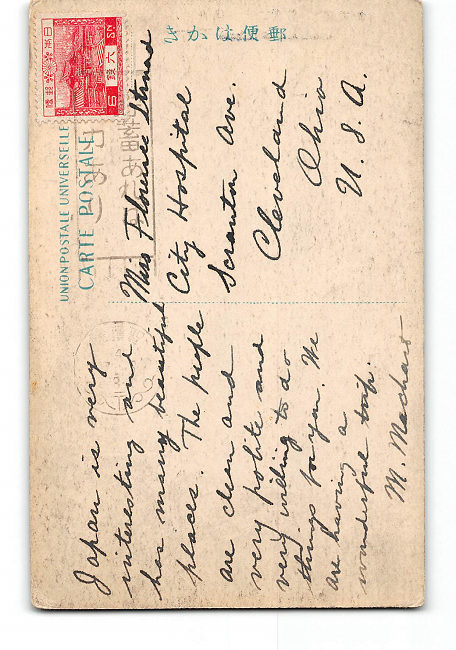 きかは便郵
UNION POSTALE UNIVERSELLE
CARTE POSTALE
Miss Florence Strand
City Hospital
Scranton Ave.
Cleveland
Ohio
U. S. A.
Japan is very
interesting and
has many beautiful
places. The people
are clean and
very polite and
very willing to do
things for you. We
are having a
wonderful trip.
M.